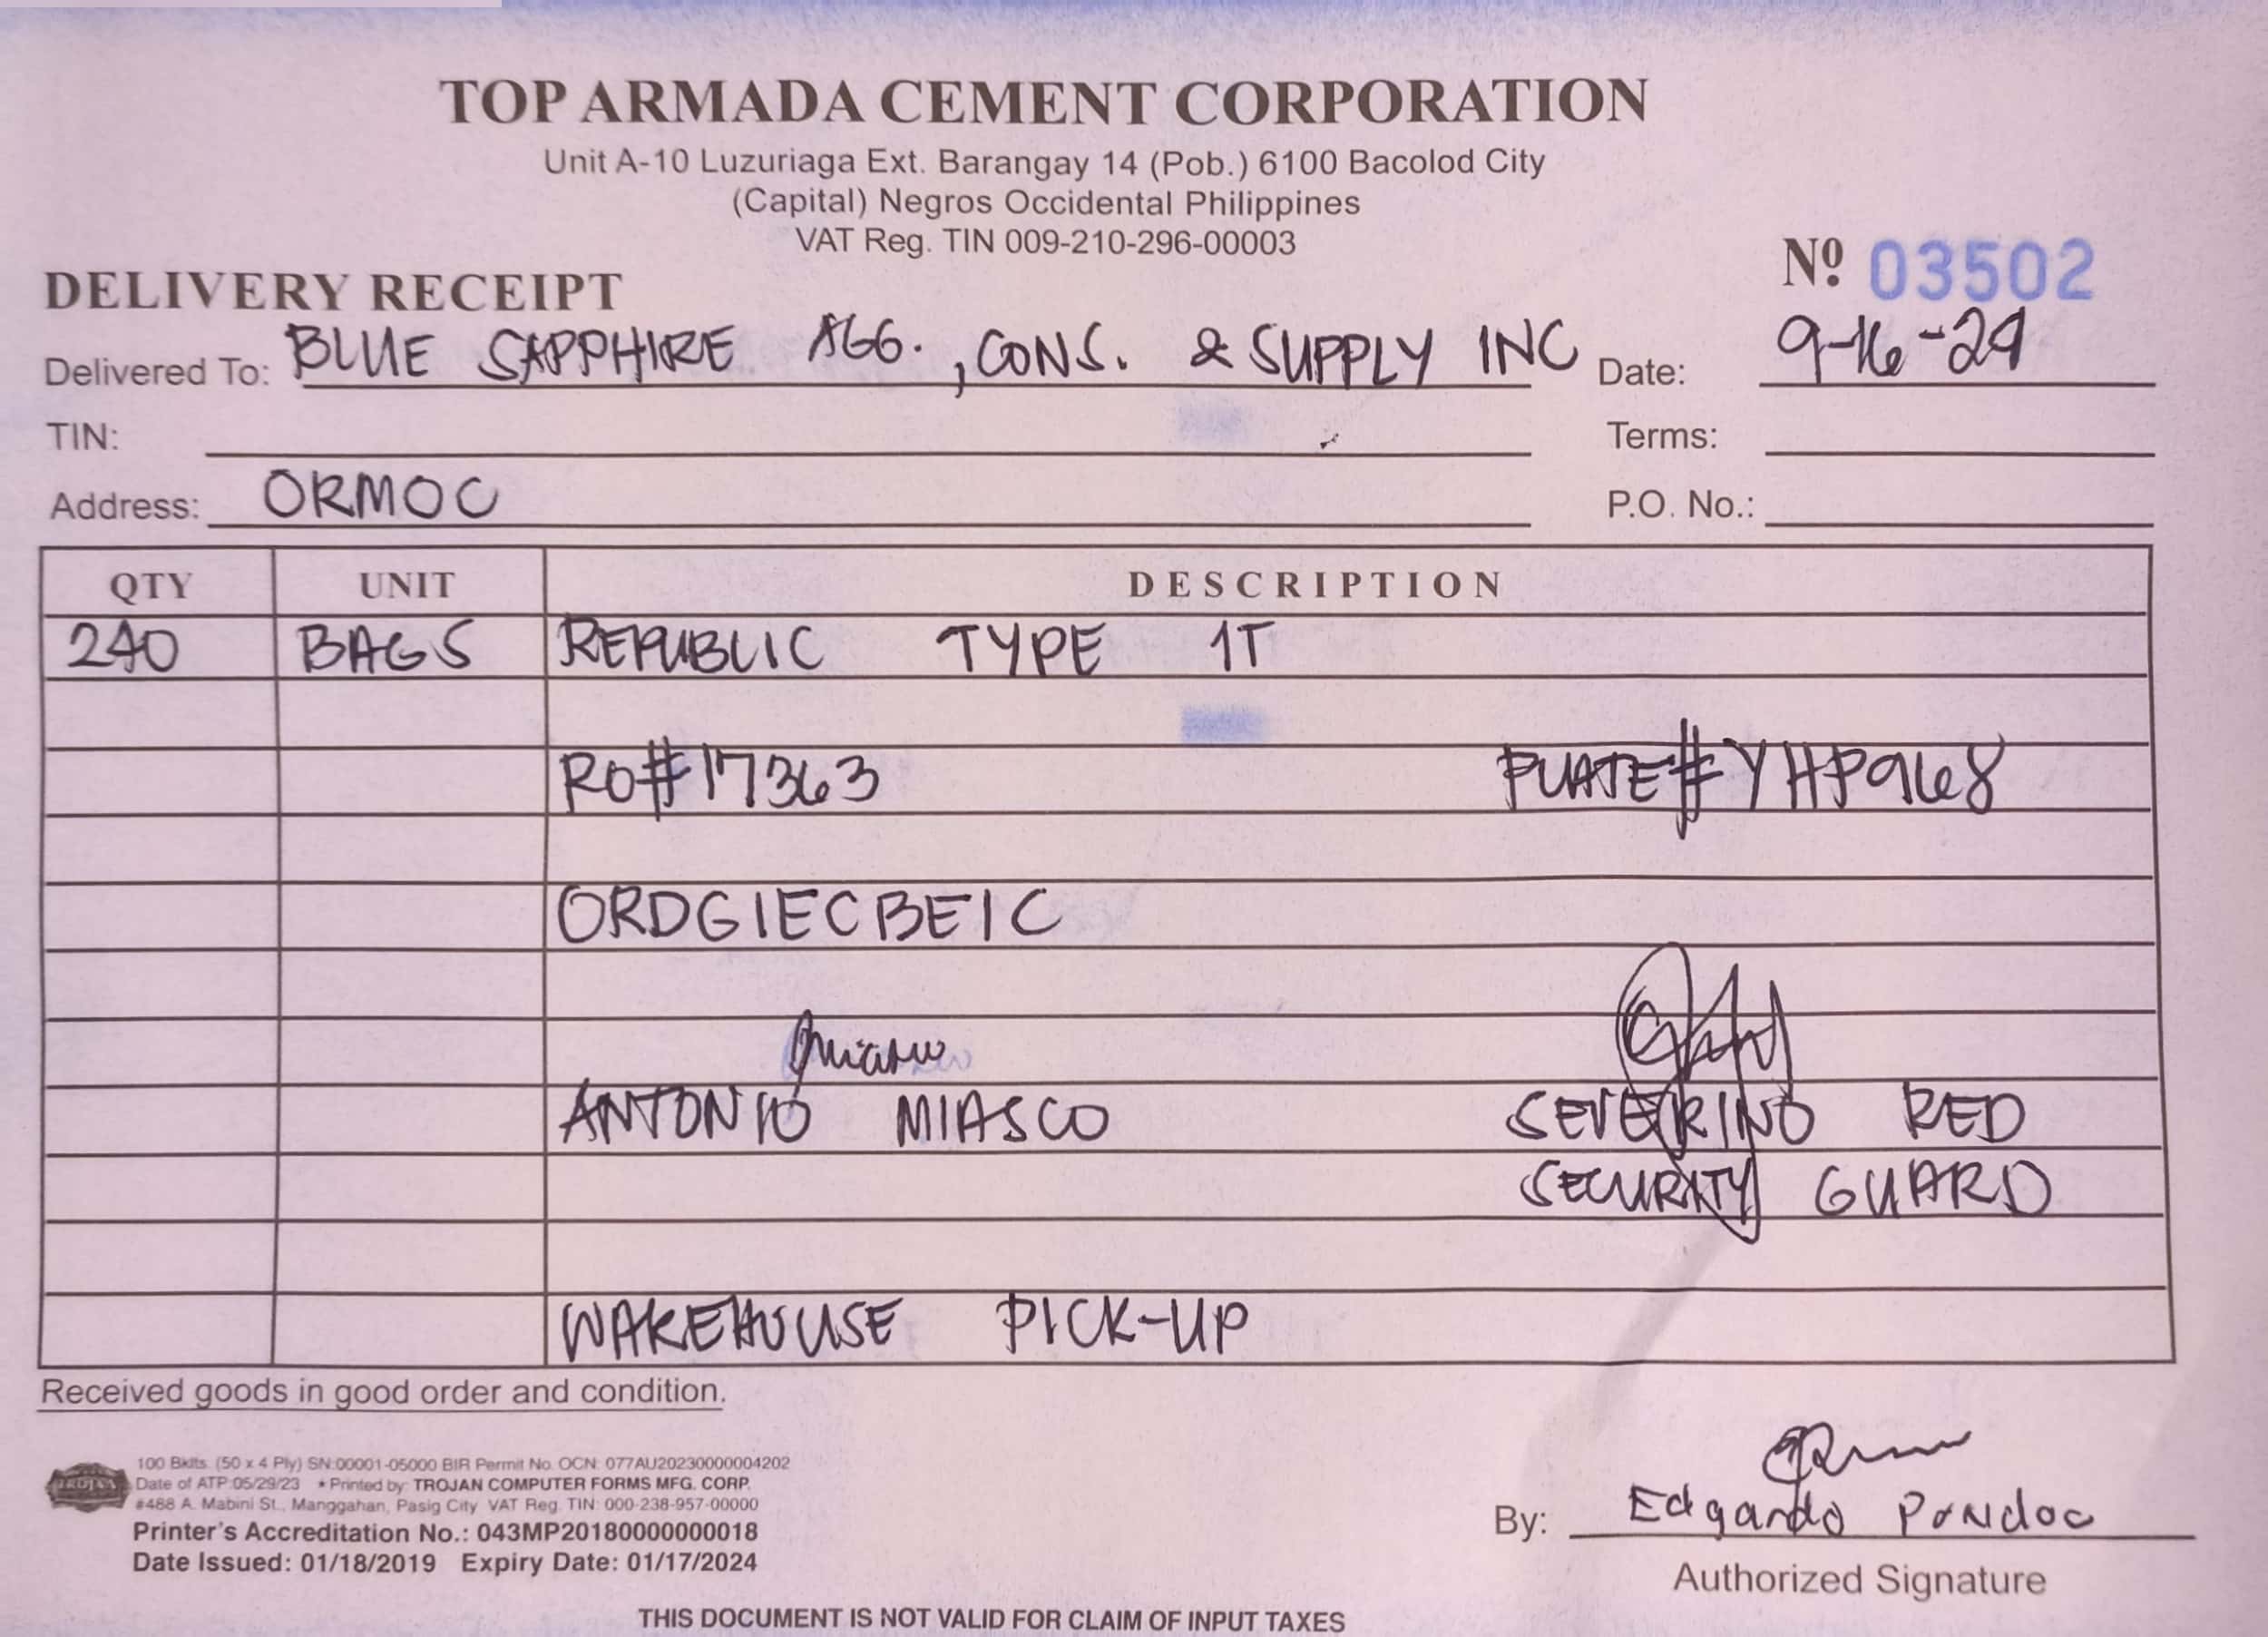 TOP ARMADA CEMENT CORPORATION
Unit A-10 Luzuriaga Ext. Barangay 14 (Pob.) 6100 Bacolod City
(Capital) Negros Occidental Philippines
VAT Reg. TIN 009-210-296-00003
Nº 03502
DELIVERY RECEIPT
Delivered To: BLUE SAPPHIRE AGG., CONS. & SUPPLY INC Date: 9-16-24
TIN: Terms:
Address: ORMOC P.O. No.:
QTY UNIT DESCRIPTION
240 BAGS REPUBLIC TYPE 1T
RO#17363 PLATE#YHP968
ORDGIECBEIC
ANTONIO MIASCO SEVERINO RED
SECURITY GUARD
WAREHOUSE PICK-UP
Received goods in good order and condition.
TROJAN
100 Bklts. (50 x 4 Ply) SN:00001-05000 BIR Permit No. OCN: 077AU20230000004202
Date of ATP:05/29/23 ★Printed by: TROJAN COMPUTER FORMS MFG. CORP.
#488 A. Mabini St., Manggahan, Pasig City VAT Reg. TIN: 000-238-957-00000
Printer's Accreditation No.: 043MP20180000000018
Date Issued: 01/18/2019 Expiry Date: 01/17/2024
By: Edgardo Pondoc
Authorized Signature
THIS DOCUMENT IS NOT VALID FOR CLAIM OF INPUT TAXES